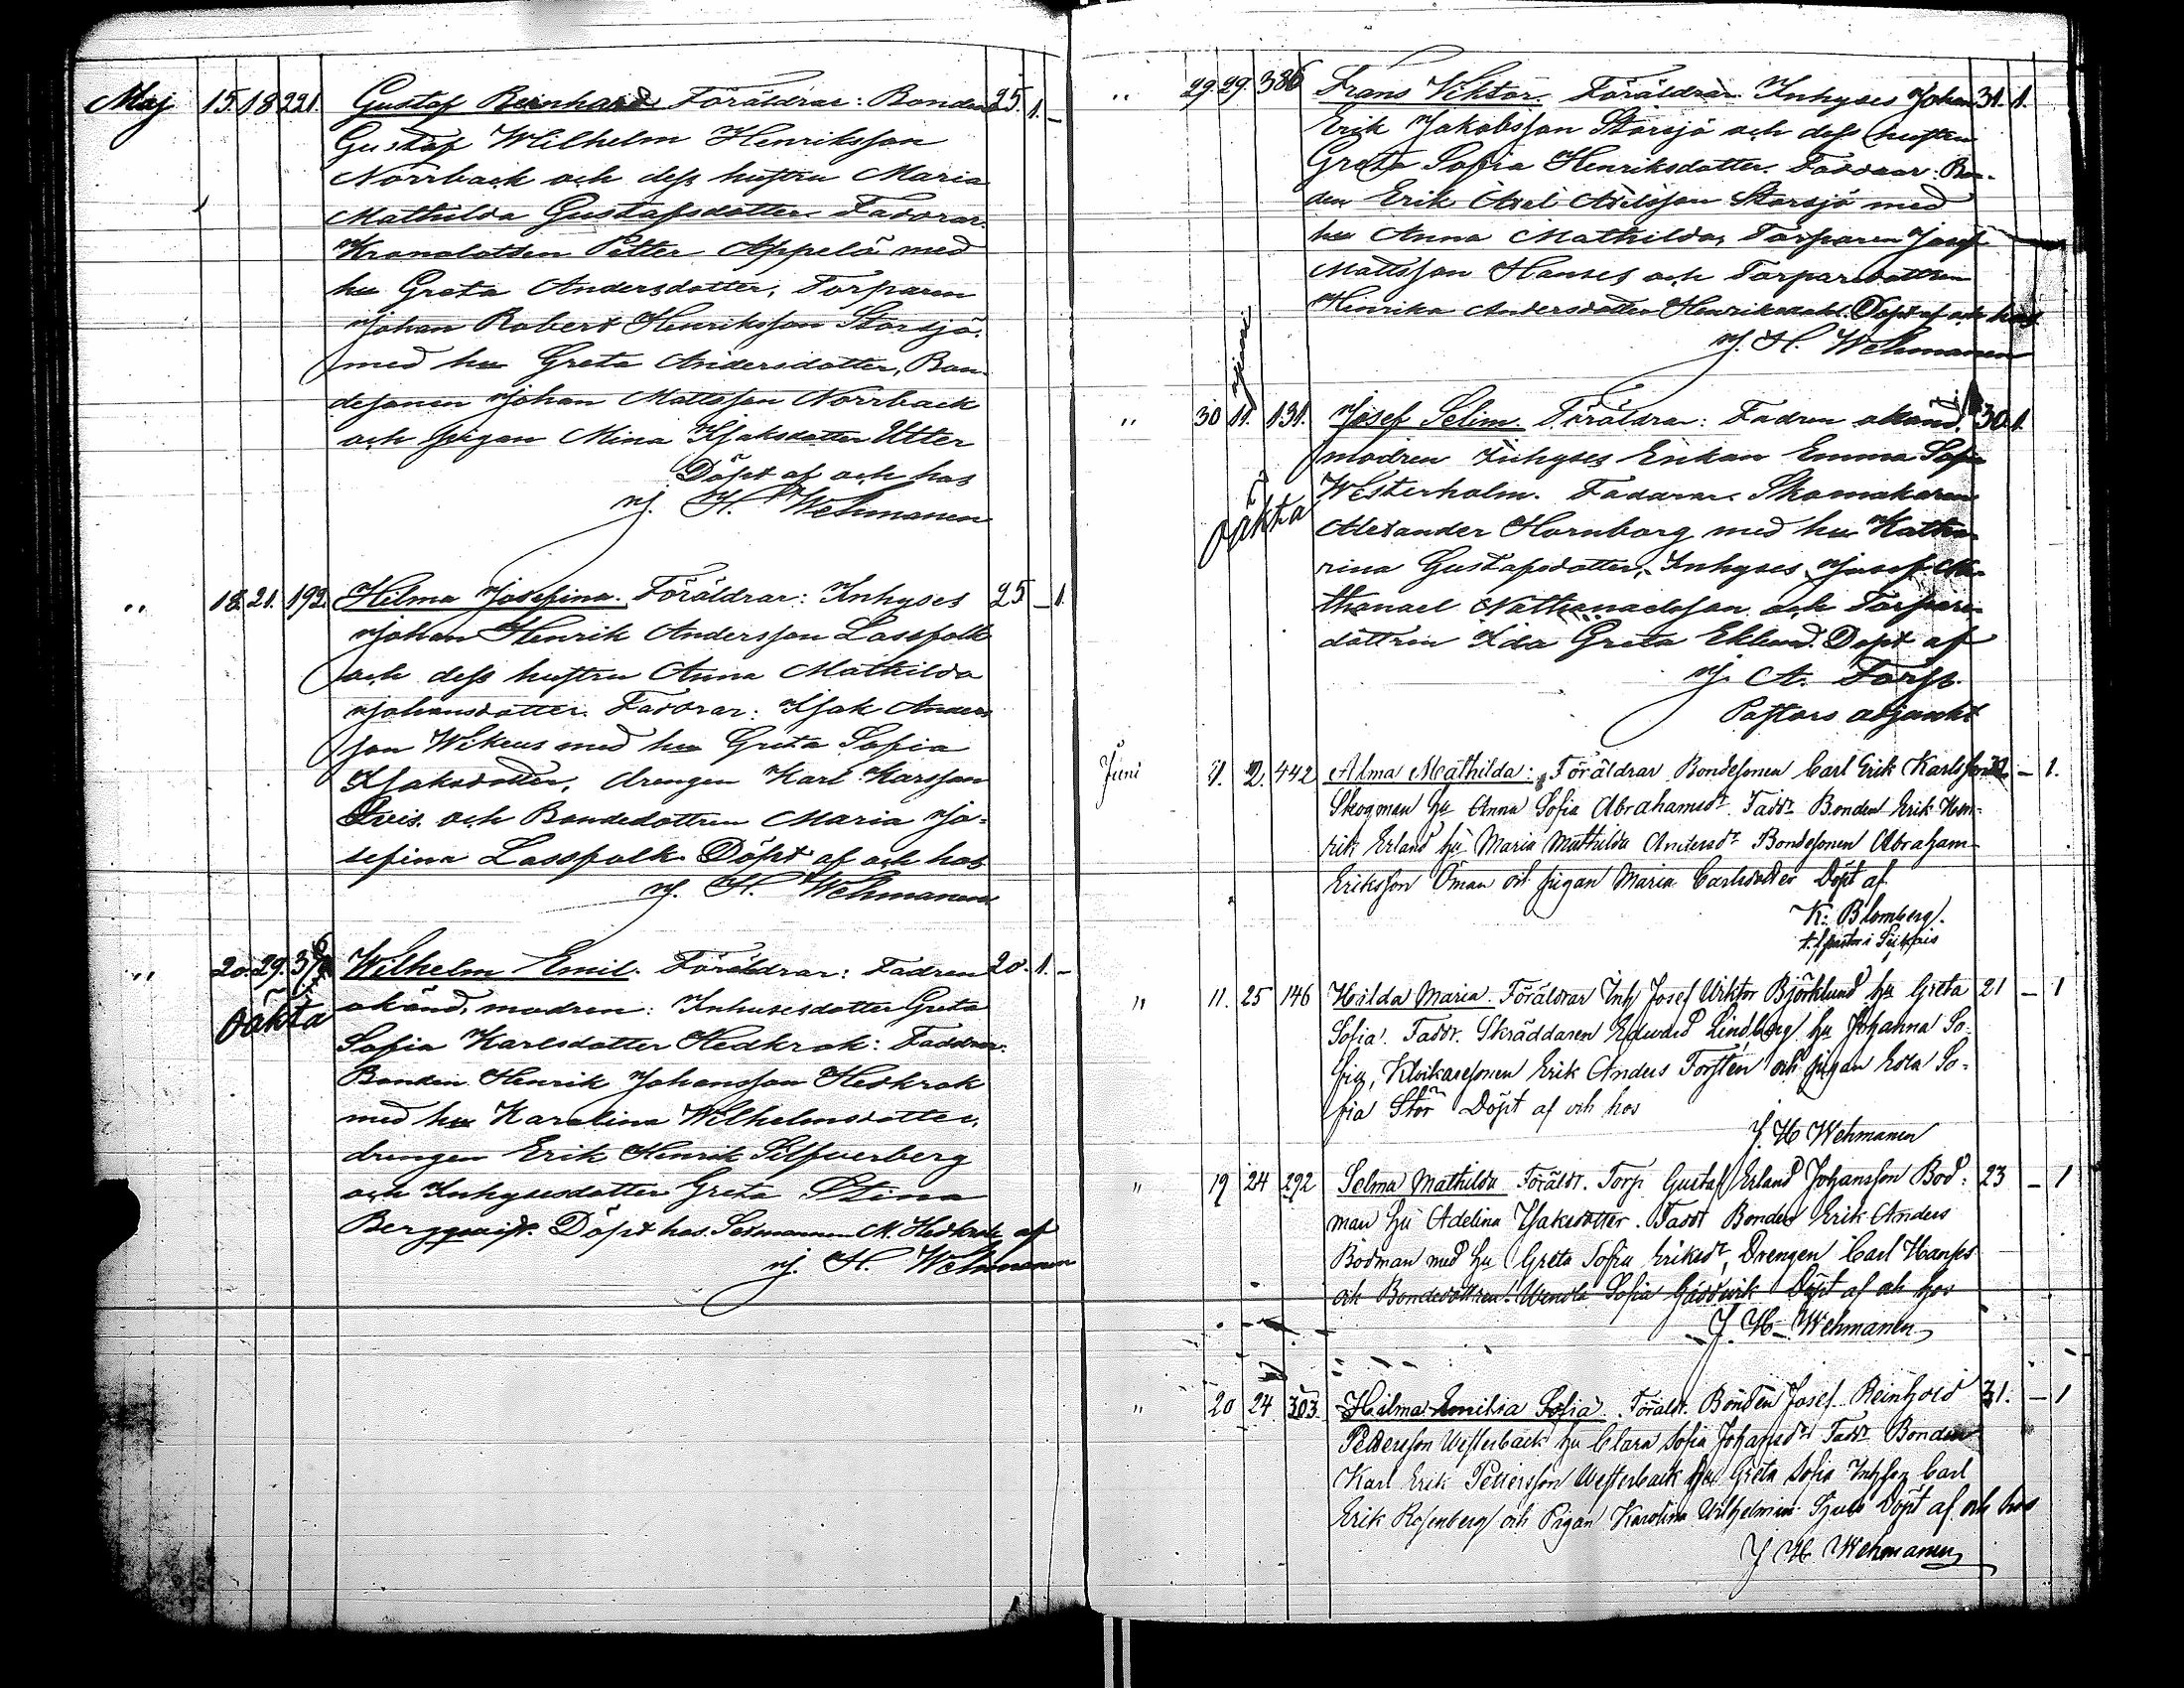 Maj 15. 18. 221. Gustaf Reinhard Föräldrar: Bonden 25. 1. –
Gustaf Wilhelm Henriksson
Norrback och dess hustru Maria
Mathilda Gustafsdotter. Faddrar:
Kronolotsen Petter Appelö med
hu Greta Andersdotter, Torparen
Johan Robert Henriksson Storsjö
med hu Greta Andersdotter, Bon-
desonen Johan Mattsson Norrback
och pigan Mina Isaksdotter Utter
Döpt af och hos
J. H. Wehmanen
" 18. 21. 192. Hilma Josefina. Föräldrar: Inhyses 25 – 1.
Johan Henrik Andersson Lassfolk
och dess hustru Anna Mathilda
Johansdotter. Faddrar: Isak Anders
son Wikeus med hu Greta Sofia
Isaksdotter, drengen Karl Karsson
och Bondedottren Maria Jo-
sefina Lassfolk. Döpt af och hos
J. H. Wehmanen
" 20. 29. Wilhelm Emil. Föräldrar: Fadren 20. 1. –
Oäkta okänd, modren: Inhysesdotter Greta
Sofia Karlsdotter Hedkrok: Faddrar:
Bonden Henrik Johansson Hedkrok
med hu Karolina Wilhelmsdotter,
drengen Erik Henrik Silfverberg
och Inhysesdotter Greta Stina
Bergqvist. Döpt hos M. Hedkrok af
J. H. Wehmanen
" 29. 29. 386 Frans Viktor. Föräldrar Inhyses Johan 31. 1.
Erik Jakobsson Storsjö och dess hustru
Greta Sofia Henriksdotter. Faddrar: Bon-
den Erik Axel Axelsson Storsjö med
hu Anna Mathilda, Torparen Josef
Mattsson Hanses och Torparedottren
Hinrika Andersdotter Henriksdal. Döpt af och hos
J. H. Wehmanen
Juni
" 30 11. 131. Josef Selim. Föräldrar: Fadren okänd, 30. 1.
modren Inhyses Enkan Emma Sofia
Oäkta Westerholm. Faddrar: Skomakaren
Alexander Hornborg med hu Katha-
rina Gustafsdotter, Inhyses Josef Na-
thanael Nathanaelsson och Torpare
dottren Ida Greta Eklund. Döpt af
J. A. Forss.
Pastors adjunkt
Juni 1. 2. 442 Alma Mathilda: Föräldrar Bondesonen Carl Erik Karlsson – 1.
Skogman hu Anna Sofia Abrahamsdr. Faddr Bonden Erik Hen-
rik Erland hu Maria Mathilda Andersdr Bondesonen Abraham
Eriksson Öman och pigan Maria Carlsdotter Döpt af
K. Blomberg.
" 11. 25 146 Hilda Maria. Föräldrar Inh Josef Wiktor Björklund hu Greta 21 – 1
Sofia. Faddr. Skräddaren Edward Lindberg hu Johanna So-
fia, Klockaresonen Erik Anders Forstén och pigan Lova So-
fia Stör Döpt af och hos
J. H Wehmanen
" 19 24 292 Selma Mathilda Föräldr. Torp. Gustaf Erland Johansson Bod- 23 – 1
man hu Adelina Isaksdotter. Faddr Bonden Erik Anders
Bodman med hu Greta Sofia Eriksdr, Drengen Carl Hanses
och Bondedottren Wendla Sofia Gäddvik Döpt af och hos
J. H. Wehmanen
" 20 24 303. Hilma Emilia Sofia. Föräldr. Bonden Josef Reinhold 31. – 1
Pettersson Westerback hu Clara Sofia Johansdr Faddr Bonden
Karl Erik Pettersson Westerback hu Greta Sofia Inhyses Carl
Erik Rosenberg och Pigan Karolina Wilhelmina Döpt af och hos
J H Wehmanen